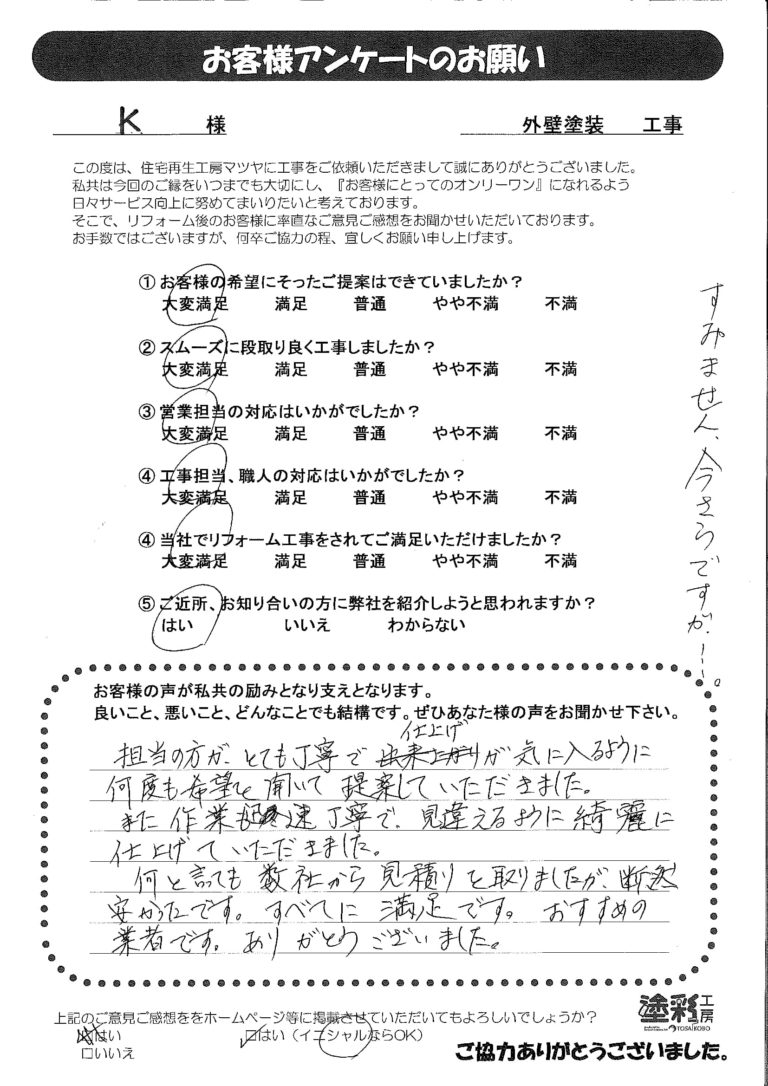 お客様アンケートのお願い
K 様 外壁塗装 工事
この度は、住宅再生工房マツヤに工事をご依頼いただきまして誠にありがとうございました。
私共は今回のご縁をいつまでも大切にし、『お客様にとってのオンリーワン』になれるよう
日々サービス向上に努めてまいりたいと考えております。
そこで、リフォーム後のお客様に率直なご意見ご感想をお聞かせいただいております。
お手数ではございますが、何卒ご協力の程、宜しくお願い申し上げます。
①お客様の希望にそったご提案はできていましたか？
大変満足 満足 普通 やや不満 不満
②スムーズに段取り良く工事しましたか？
大変満足 満足 普通 やや不満 不満
③営業担当の対応はいかがでしたか？
大変満足 満足 普通 やや不満 不満
④工事担当、職人の対応はいかがでしたか？
大変満足 満足 普通 やや不満 不満
④当社でリフォーム工事をされてご満足いただけましたか？
大変満足 満足 普通 やや不満 不満
⑤ご近所、お知り合いの方に弊社を紹介しようと思われますか？
はい いいえ わからない
すみません、今さらですが…。
お客様の声が私共の励みとなり支えとなります。
良いこと、悪いこと、どんなことでも結構です。ぜひあなた様の声をお聞かせ下さい。
仕上げ
担当の方が、とても丁寧で 出来上がりが気に入るように
何度も希望を聞いて提案していただきました。
また作業も 速 丁寧で、見違えるように綺麗に
仕上げていただきました。
何と言っても数社から見積りを取りましたが、断然
安かったです。すべてに満足です。おすすめの
業者です。ありがとうございました。
上記のご意見ご感想ををホームページ等に掲載させていただいてもよろしいでしょうか？
はい ☑はい（イニシャルならOK）
□いいえ
塗彩工房
TOSAIKOBO
ご協力ありがとうございました。